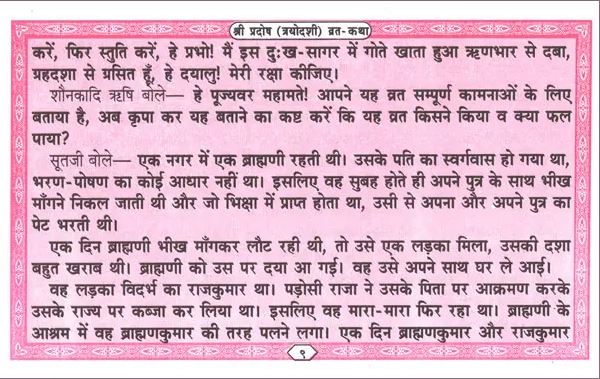 श्री प्रदोष (त्रयोदशी) व्रत-कथा
करें, फिर स्तुति करें, हे प्रभो! मैं इस दुःख-सागर में गोते खाता हुआ ऋणभार से दबा,
ग्रहदशा से ग्रसित हूँ, हे दयालु! मेरी रक्षा कीजिए।
शौनकादि ऋषि बोले— हे पूज्यवर महामते! आपने यह व्रत सम्पूर्ण कामनाओं के लिए
बताया है, अब कृपा कर यह बताने का कष्ट करें कि यह व्रत किसने किया व क्या फल
पाया?
सूतजी बोले— एक नगर में एक ब्राह्मणी रहती थी। उसके पति का स्वर्गवास हो गया था,
भरण-पोषण का कोई आधार नहीं था। इसलिए वह सुबह होते ही अपने पुत्र के साथ भीख
माँगने निकल जाती थी और जो भिक्षा में प्राप्त होता था, उसी से अपना और अपने पुत्र का
पेट भरती थी।
एक दिन ब्राह्मणी भीख माँगकर लौट रही थी, तो उसे एक लड़का मिला, उसकी दशा
बहुत खराब थी। ब्राह्मणी को उस पर दया आ गई। वह उसे अपने साथ घर ले आई।
वह लड़का विदर्भ का राजकुमार था। पड़ोसी राजा ने उसके पिता पर आक्रमण करके
उसके राज्य पर कब्जा कर लिया था। इसलिए वह मारा-मारा फिर रहा था। ब्राह्मणी के
आश्रम में वह ब्राह्मणकुमार की तरह पलने लगा। एक दिन ब्राह्मणकुमार और राजकुमार
९